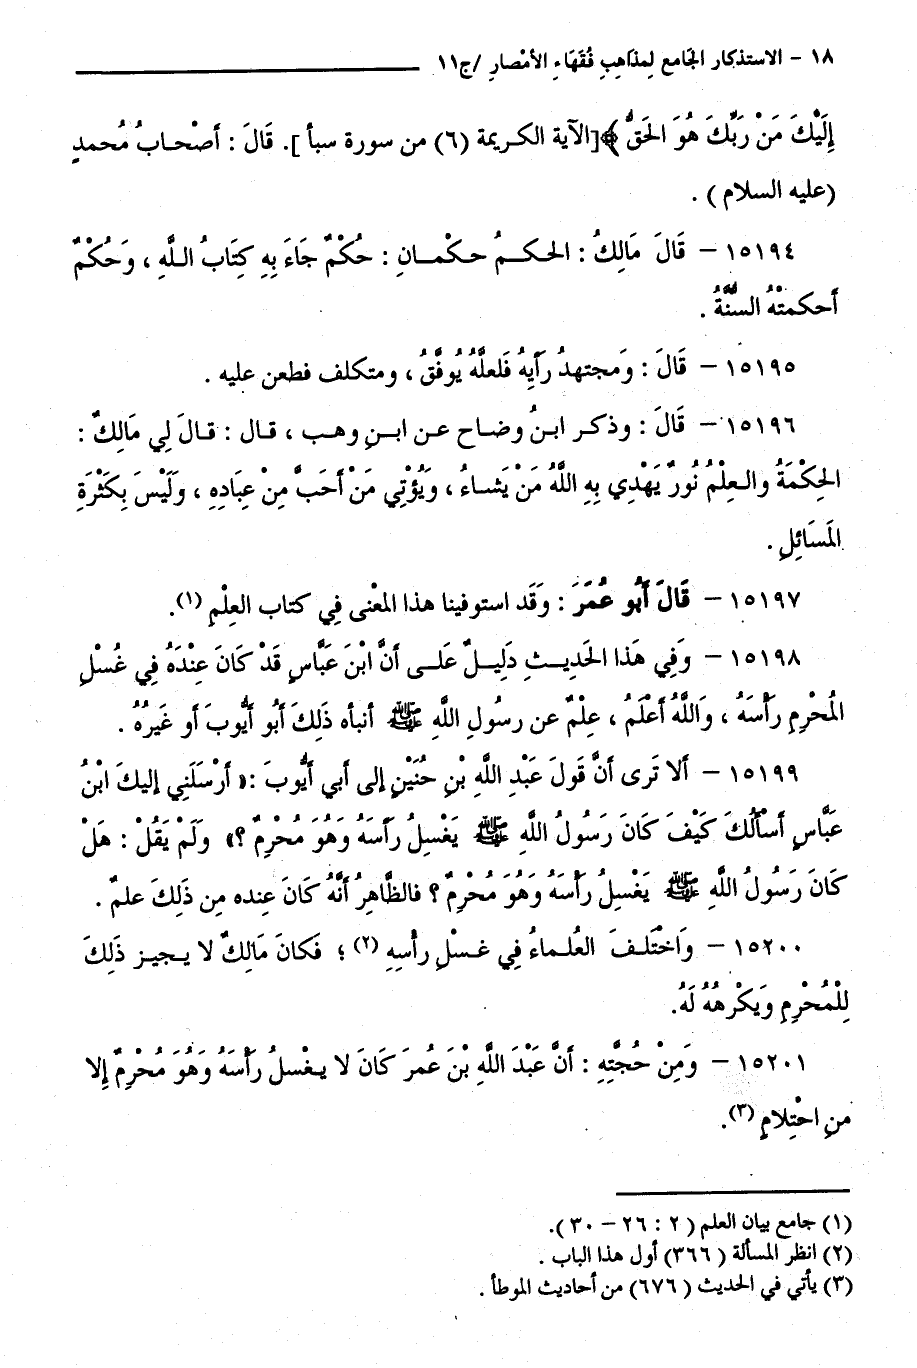 ١٨ - الاستذكار الجَامع لِمذاهِبِ فُقَهَاءِ الأمْصارِ /ج١١
إِلَيْكَ مَنْ رَبِّكَ هُوَ الحَقُّ ﴾[الآية الكريمة (٦) من سورة سبأ ]. قَالَ : أصْحابُ مُحمدٍ
(عليه السلام ) .
١٥١٩٤ - قَالَ مَالِكُ : الحكمُ حكْمانِ : حُكْمٌ جَاءَ بِهِ كِتَابُ اللَّهِ ، وَحُكْمٌ
أحكمتْهُ السنَّةُ .
١٥١٩٥ - قَالَ : وَمجتهدُ رَأيِهُ فَلعلَّهُ يُوفَّقُ ، ومتكلف فطعن عليه .
١٥١٩٦ - قَالَ : وذكر ابنُ وضاح عن ابنِ وهب ، قال : قالَ لِي مَالِكٌ :
الحِكْمَةُ والعِلْمُ نُورٌ يَهْدِي بِهِ اللَّهُ مَنْ يَشاءُ ، وَيُؤْتِي مَنْ أحَبَّ مِنْ عِبَادِهِ ، وَلَيْسَ بِكَثْرَةِ
المَسَائِلِ .
١٥١٩٧ - قَالَ أَبُو عُمَرَ : وَقَد استوفينا هذا المعْنى فِي كتاب العِلْمِ (١).
١٥١٩٨ - وَفِي هَذا الحَدِيثِ دَلِيلٌ عَلَى أنَّ ابْنَ عَبَّاسٍ قَدْ كَانَ عِنْدَهُ فِي غُسْلِ
المُحْرِمِ رَأسَهُ ، وَاللَّهُ أعْلَمُ ، عِلْمٌ عن رسُولِ اللَّهِ ﷺ أنبأه ذَلِكَ أبُو أيُّوبَ أو غَيرُهُ .
١٥١٩٩ - ألا تَرى أنَّ قَولَ عَبْدِ اللَّهِ بْنِ حُنَيْنٍ إلى أبي أيُّوبَ :« أرْسَلَنِي إليكَ ابْنُ
عَبَّاسٍ أسْألُكَ كَيْفَ كَانَ رَسُولُ اللَّهِ ﷺ يَغْسِلُ رَأسَهُ وَهُوَ مُحْرِمٌ ؟» وَلَمْ يَقُلْ : هَلْ
كَانَ رَسُولُ اللَّهِ ﷺ يَغْسِلُ رَأسَهُ وَهُوَ مُحْرِمٌ ؟ فالظَّاهِرُ أنَّهُ كَانَ عِنده مِن ذَلِكَ علمٌ .
١٥٢٠٠ - وَاخْتَلَفَ العُلماءُ فِي غسْلِ رأسِهِ (٢) ؛ فَكانَ مَالِكٌ لا يجيز ذَلِكَ
لِلْمُحْرِمِ وَيَكْرهُهُ لَهُ.
١٥٢٠١ - وَمِنْ حُجَّتِهِ : أنَّ عَبْدَ اللَّهِ بْنَ عُمرَ كَانَ لا يغْسلُ رَأسَهُ وَهُوَ مُحْرِمٌ إلا
منِ احْتِلامٍ (٣).
(١) جامع بيان العلم ( ٢ : ٢٦ - ٣٠ ).
(٢) انظر المسألة ( ٣٦٦) أول هذا الباب .
(٣) يأتي في الحديث ( ٦٧٦) من أحاديث الموطأ .